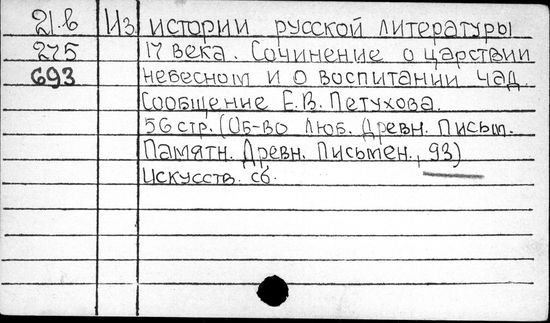 21.6 Из истории русской литературы
275 17 века. Сочинение о царствии
693 небесном и о воспитании чад.
Сообщение Е.В. Петухова.
56 стр. (Об-во Люб. Древн. Письм.
Памятн. Древн. Письмен., 93)
Искусств. сб.